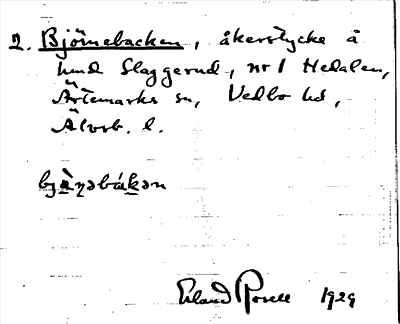 2. Björnebacken, åkerstycke å
hmd Slaggerud, nr 1 Hedalen,
Ärtemarks sn, Vedbo hd,
Älvsb. l.
bjὰṇəbákən
Erland Rosell 1929